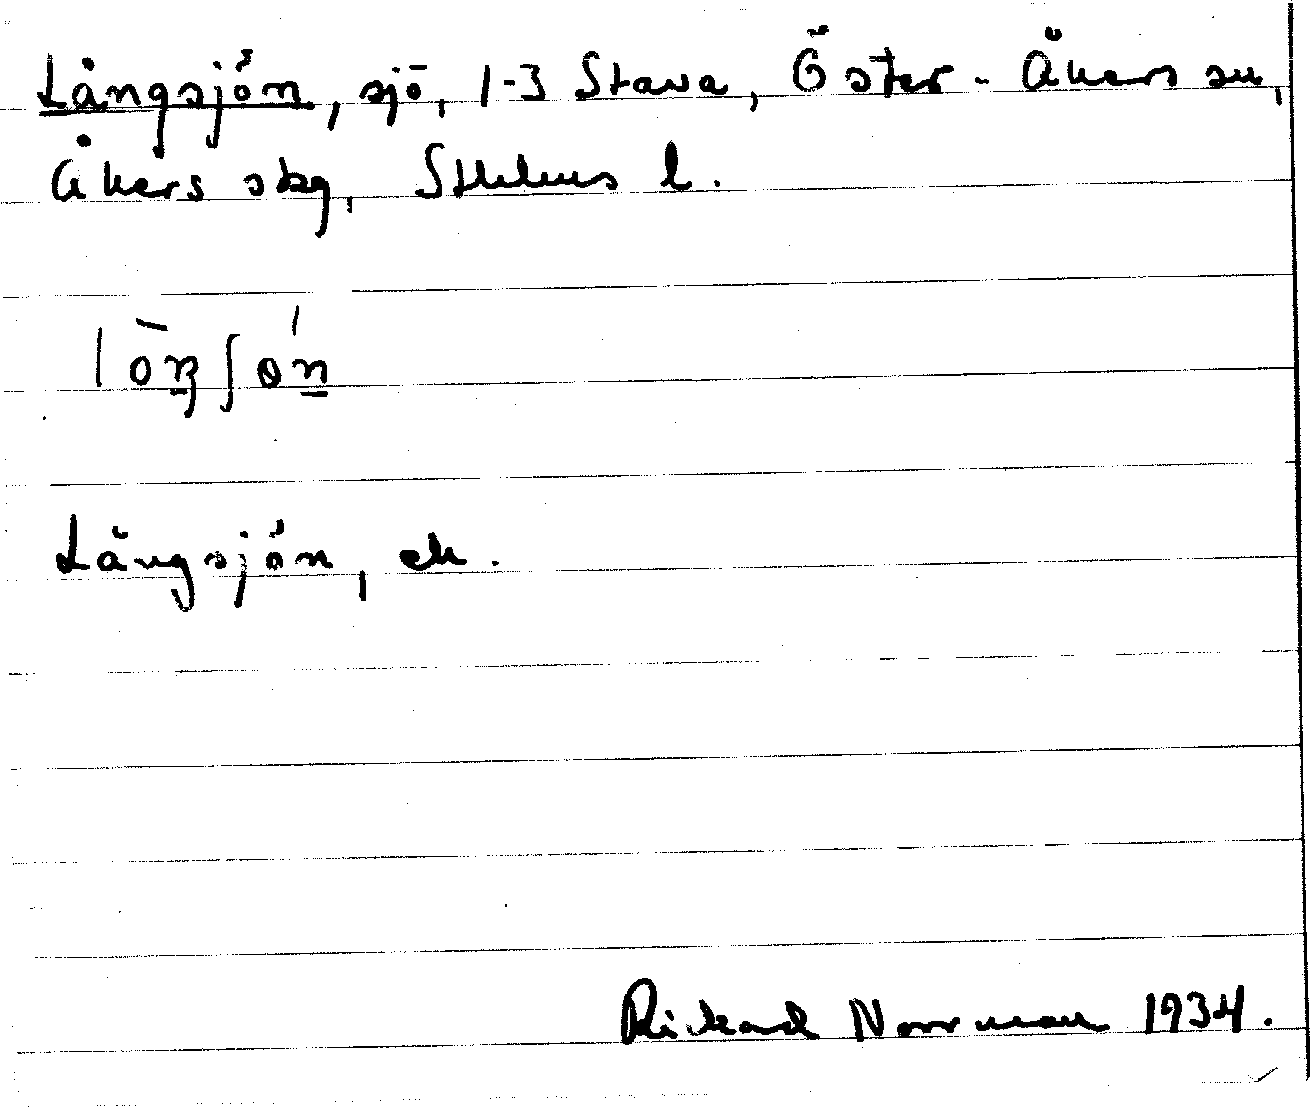 Långsjön, sjö, 1-3 Stava, Öster-Åkers sn,
Åkers skg, Sthlms l.
lòŋʃǿn
Långsjön, ek.
Rickard Norrman 1934.